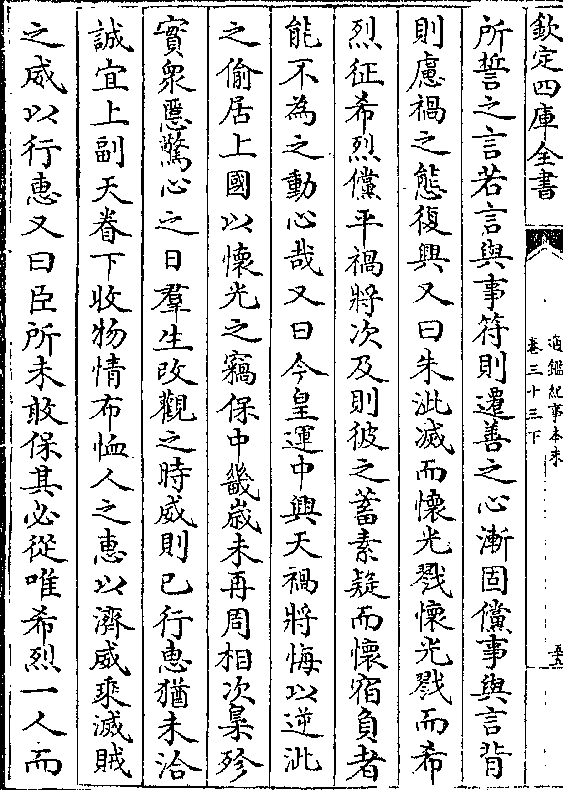 欽定四庫全書
通鑑紀事本末
卷三十三下
所誓之言若言與事符則遷善之心漸固儻事與言背
則慮禍之態復興又曰朱泚滅而懷光戮懷光戮而希
烈征希烈儻平禍將次及則彼之蓄素疑而懷宿負者
能不為之動心哉又曰今皇運中興天禍將悔以逆泚
之偷居上國以懷光之竊保中畿歲未再周相次梟殄
實衆慝驚心之日羣生改觀之時威則已行惠猶未洽
誠宜上副天眷下收物情布恤人之惠以濟威乘滅賊
之威以行惠又曰臣所未敢保其必從唯希烈一人而